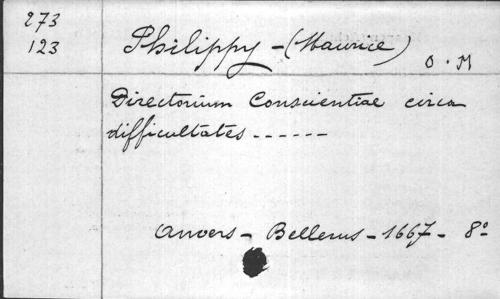 273
123
Philippy - (Maurice) O. M
Directorium Conscientiae circa
difficultates ------
Anvers - Bellerus - 1667 - 8º